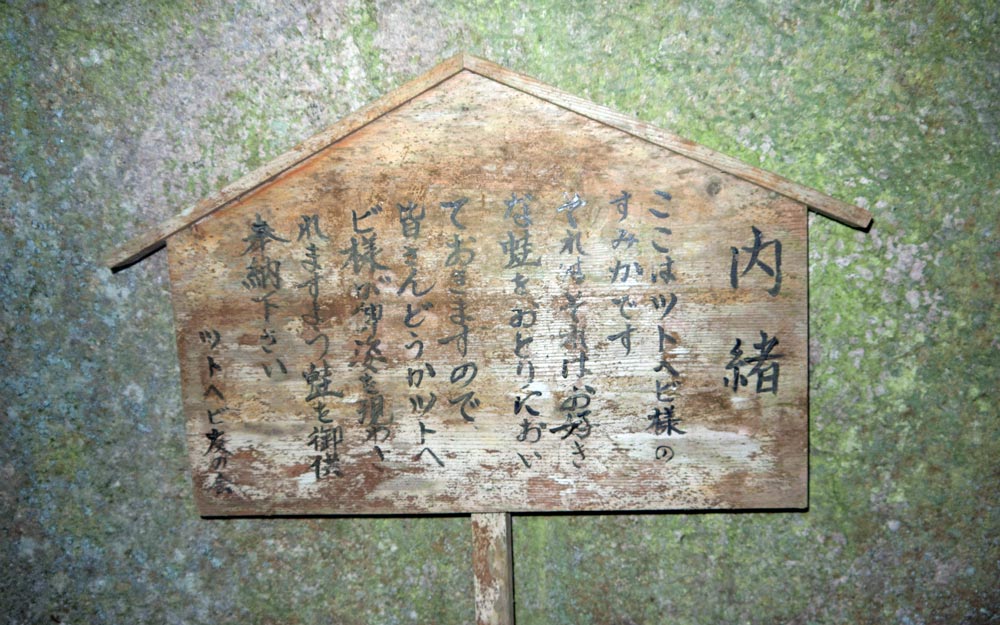 内緒
ここはツトヘビ様の
すみかです
それはそれはお好き
な蛙をおとりにおい
ておきますので
皆さんどうかツトヘ
ビ様が御姿を現わさ
れますよう蛙を御供
奉納下さい
ツトヘビ友の会